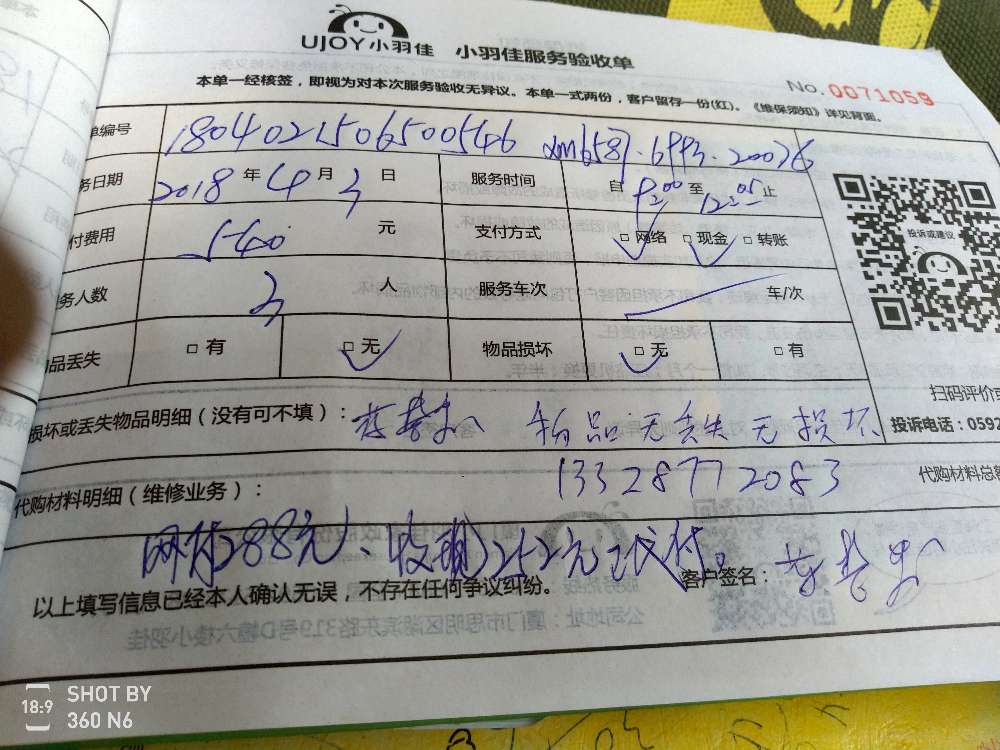 UJOY小羽佳 小羽佳服务验收单
本单一经核签，即视为对本次服务验收无异议。本单一式两份，客户留存一份(红)。《维保须知》详见背面。
No.0071059
单编号 1804021506500546
务日期 2018年4月3日 服务时间 自9:00至12:05止
付费用 540元 支付方式 □网络 □现金 □转账
务人数 3人 服务车次 车/次
品丢失 □有 □无 物品损坏 □无 □有
投诉或建议
扫码评价或
投诉电话：0592
损坏或丢失物品明细（没有可不填）： 物品无丢失无损坏
13328772083
代购材料明细（维修业务）： 代购材料总
网付288元、收现252元已付。
以上填写信息已经本人确认无误，不存在任何争议纠纷。 客户签名：
公司地址：厦门市思明区湖滨东路319号D幢六楼小羽佳
18:9 SHOT BY
360 N6